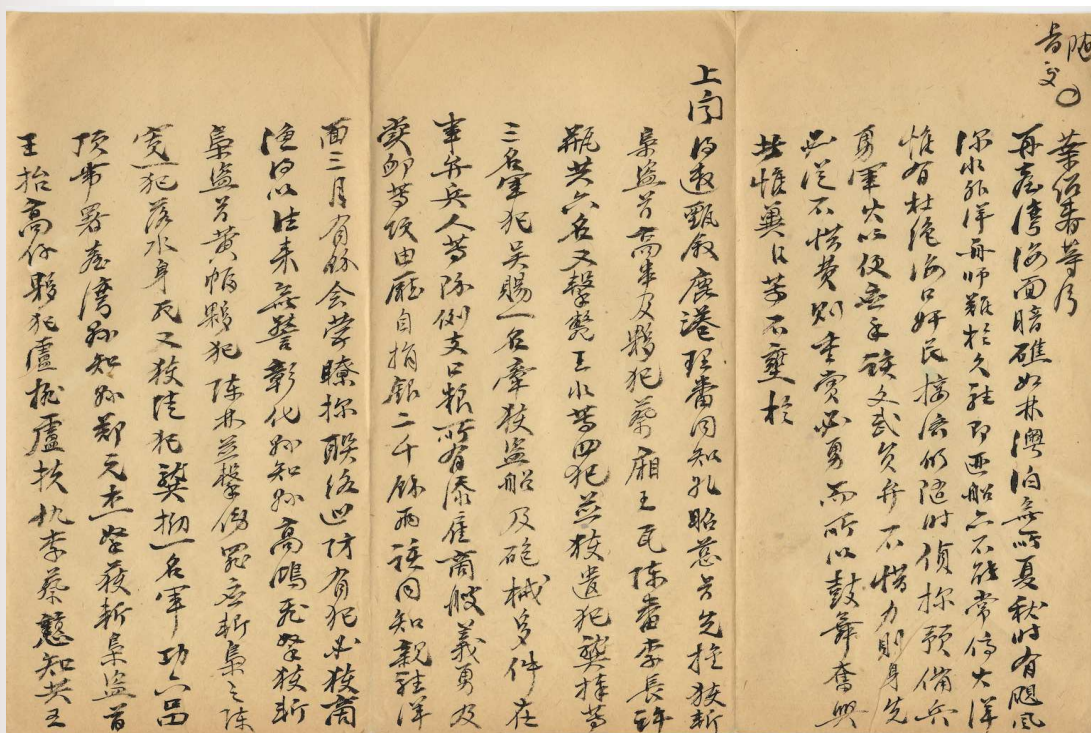 随
旨交
葉紹春等片
再臺灣海面暗礁如林灣泊無所夏秋時有颶風
深水外洋舟師難於久駐即逆船亦不能常停大洋
惟有杜絕海口奸民接濟仍隨時偵探預備兵
勇軍火以便無事該文武員弁不惜力則身先
必從不惜費則重賞必勇而所以鼓舞奮興
者惟冀日苦不壅於
上聞得邀甄敘鹿港理番同知孔昭慈前先拴獲斬
梟盜首高來及夥犯蔡廂王瓦陳番李長許
瓶共六名又擊斃王水等四犯並獲遣犯龔拌等
三名軍犯吳賜一名牽獲盜船及砲械多件在
事弁兵人等除例支口糧所有添雇商艘義勇及
獎卹等項由廳自捐銀二千餘兩該同知親駐洋
面三月有餘會營瞭探聯絡巡防有犯必獲商
漁得以往來無警彰化縣知縣高鴻飛拏獲斬
梟盜首黃蝦夥犯陳林並擊傷罪應斬梟之陳
寬一犯落水身死又獲徒犯龔拗一名軍功六品
頂帶署臺灣縣知縣鄭元杰拏獲斬梟盜首
王抬高仔夥犯盧桃盧扶仇李蔡慧知共五